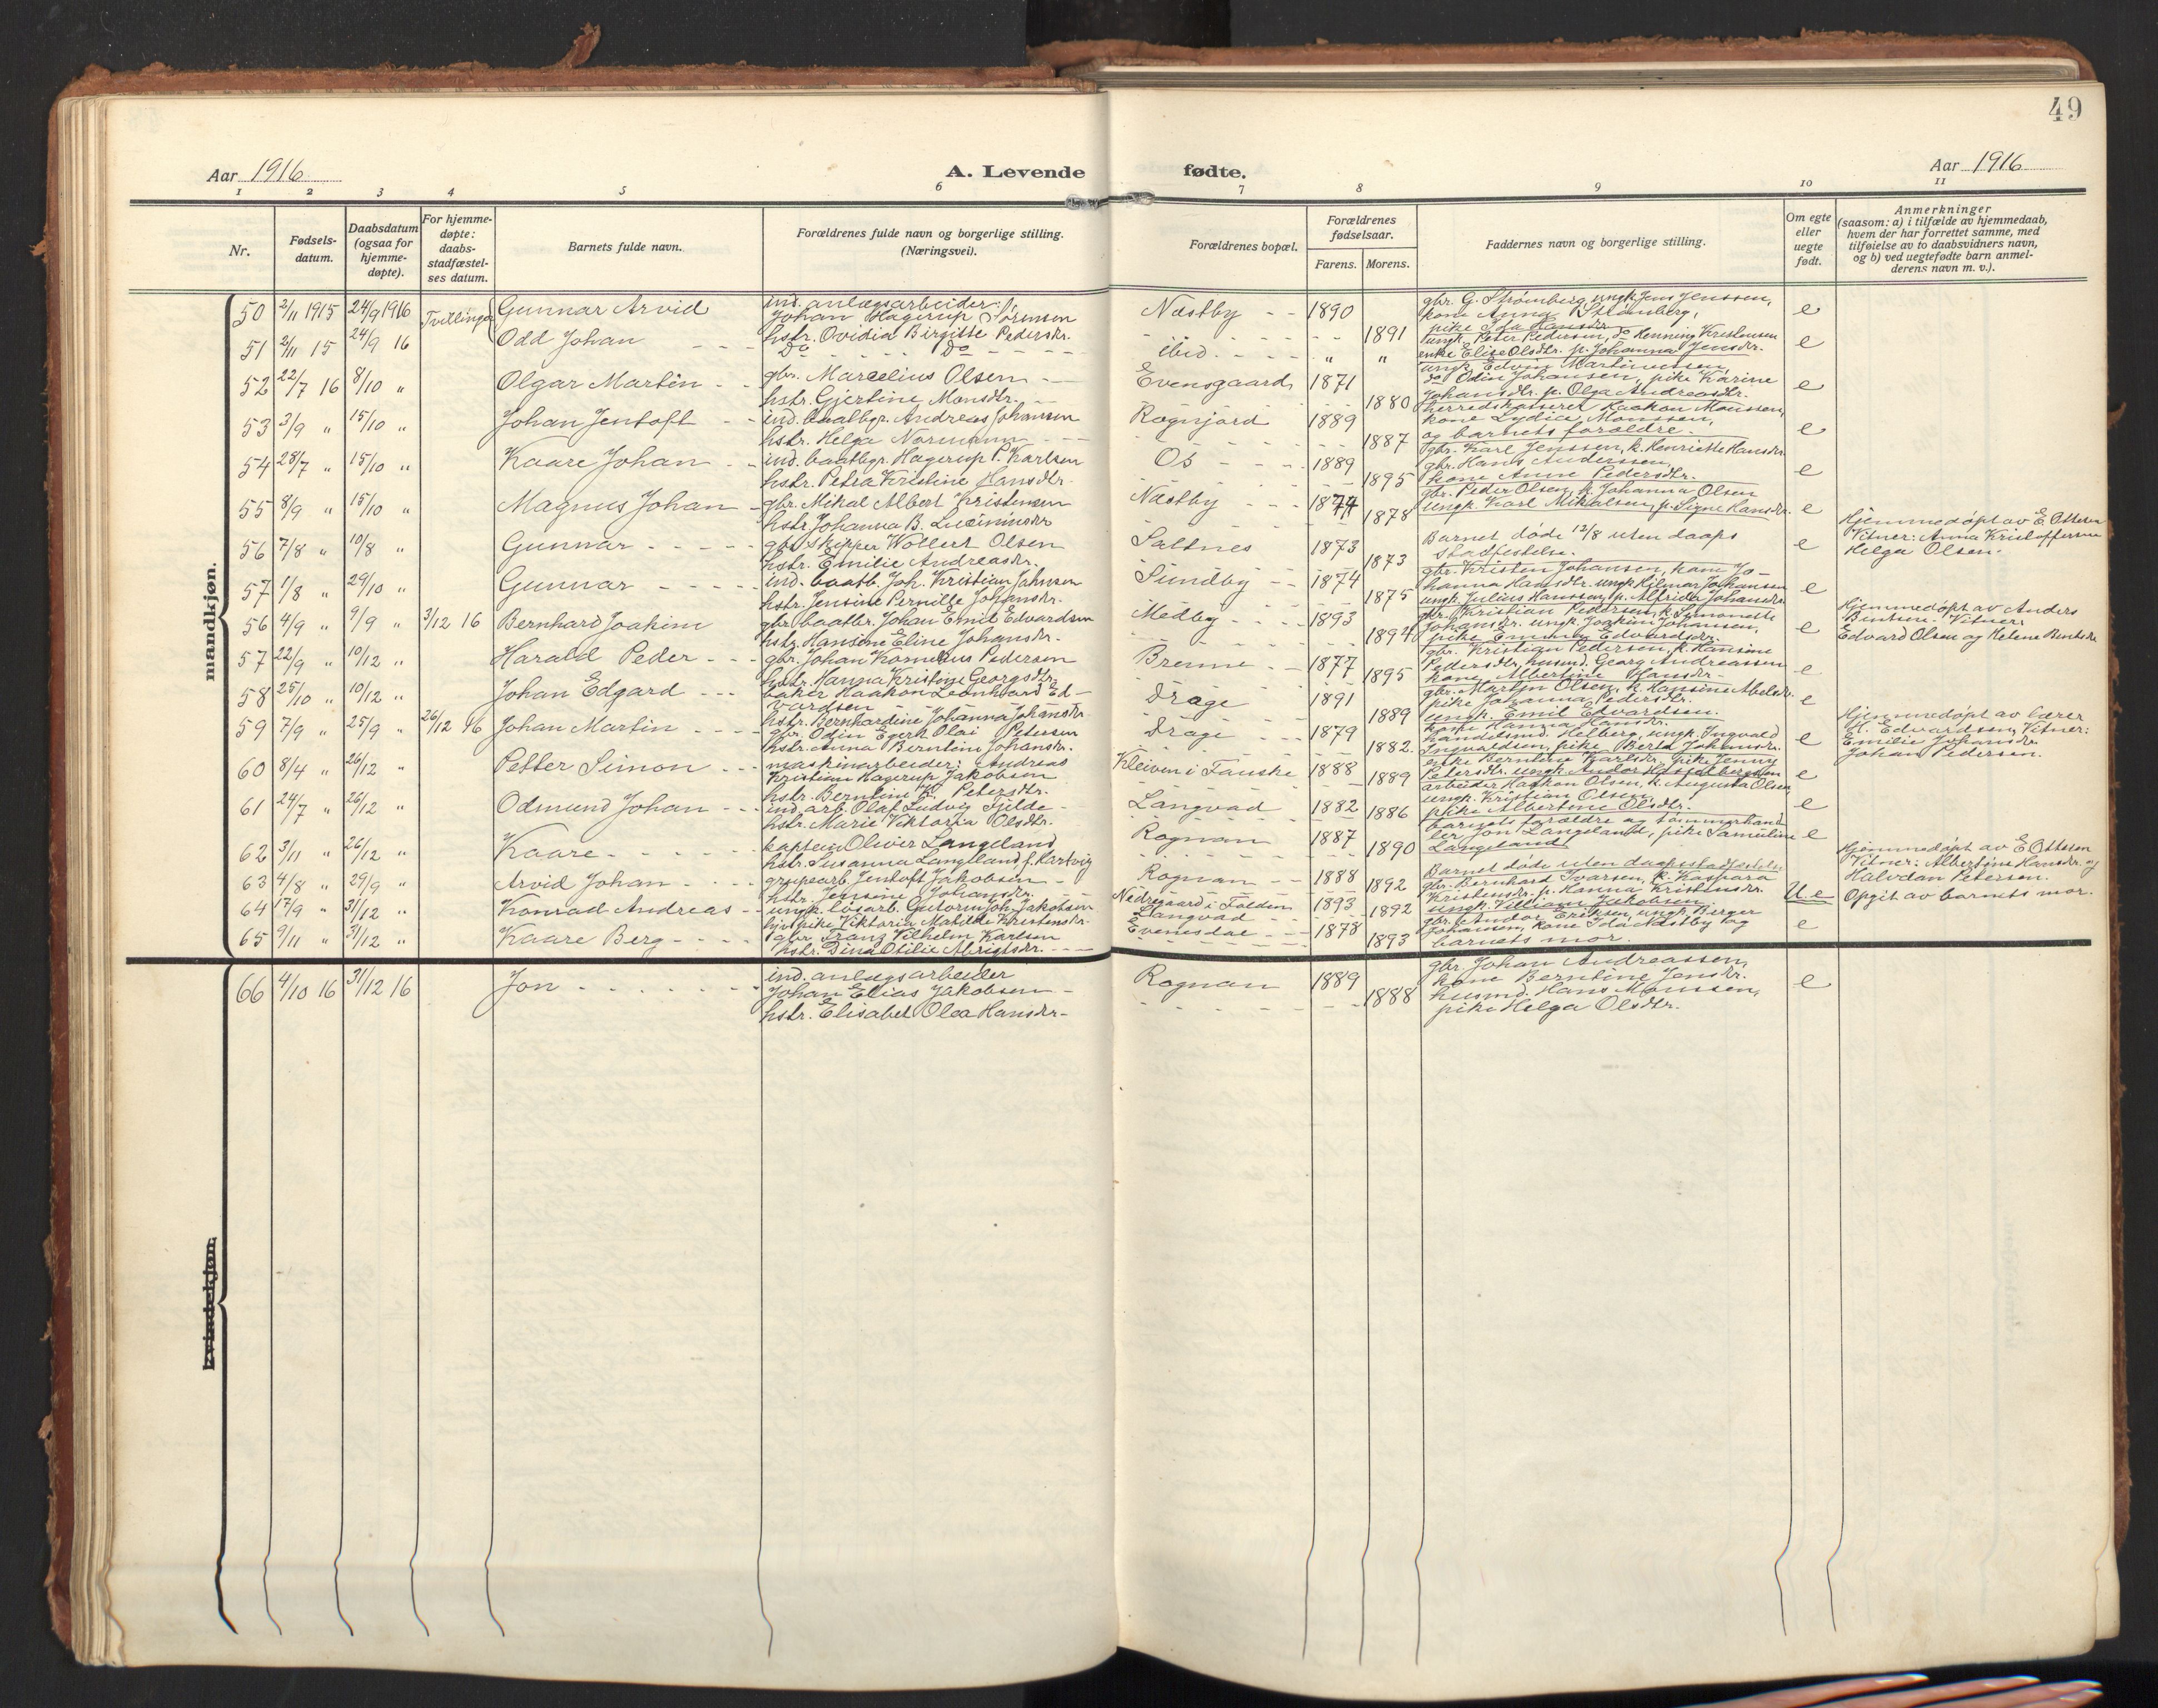 49
Aar 1916 A. Levende fødte. Aar 1916
1 2 3 4 5 6 7 8 9 10 11
Nr.
Fødsels-
datum.
Daabsdatum
(ogsaa for
hjemme-
døpte).
For hjemme-
døpte:
daabs-
stadfæstel-
ses datum.
Barnets fulde navn.
Forældrenes fulde navn og borgerlige stilling.
(Næringsvei).
Forældrenes bopæl.
Forældrenes
fødselsaar.
Farens. Morens.
Faddernes navn og borgerlige stilling.
Om egte
eller
uegte
født.
Anmerkninger
(saasom: a) i tilfælde av hjemmedaab,
hvem der har forrettet samme, med
tilføielse av to daabsvidners navn,
og b) ved uegtefødte barn anmel-
derens navn m. v.).
mandkjøn.
50 2/11 1915 24/9 1916 Tvillinger Gunnar Arvid
ind. anlægsarbeider
Johan Hagerup Sørensen
hstr. Ovidia Birgitte Pedersdtr.
Næstby 1890 1891
gbr. G. Strømberg, ungk. Jens Jenssen,
kone Anna Strømberg,
pike Ida Hansdtr.
e
51 2/11 15 24/9 16 Odd Johan
Do Do
ibid. " "
ungk. Peter Pedersen, do Henning Kristensen
enke Elise Olsdtr. p. Johanna Jensdtr.
e
52 22/7 16 8/10 " Olgar Martin
gbr. Marcelius Olsen
hstr. Gjertine Monsdtr.
Evensgaard 1871 1880
ungk. Edvin Martinussen,
do Odin Johansen, pike Karine
Johansdtr. p. Olga Andreasdtr.
e
53 3/9 " 15/10 " Johan Jentoft
ind. baatbgr. Andreas Johansen
hstr. Helga Normann
Rognjord 1889 1887
herredskasserer Haakon Monssen,
kone Lydia Monssen,
og barnets forældre.
e
54 28/7 " 15/10 " Kaare Johan
ind. baatbgr. Hagerup P. Karlsen
hstr. Petra Kristine Hansdtr.
Os 1889 1895
gbr. Karl Jenssen, k. Henriette Hansdtr.
gbr. Hans Anderssen,
kone Anne Pedersdtr.
e
55 8/9 " 15/10 " Magnus Johan
gbr. Mikal Albert Kristensen
hstr. Johanna B.
Næstby 1874 1878
gbr. Peder Olsen, k. Johanna Olsen
ungk. Karl Mikalsen, p. Signe Hansdtr.
e
56 7/8 " 10/8 " Gunnar
gbr. skipper Wollert Olsen
hstr. Emilie Andreasdtr.
Saltnes 1873 1873
Barnet døde 12/8 uten daaps
stadfestelse.
e
Hjemmedøpt av E. Ottesen
Vitner: Anna Kristoffersen
Helga Olsen.
57 1/8 " 29/10 " Gunnar
ind. baatb. Joh. Kristian Johnsen
hstr. Jensine Pernille Johansdtr.
Sundby 1874 1875
gbr. Kristen Johansen, kone Jo-
hanna Hansdtr. ungk. Hilmar Johansen
ungk. Julius Hanssen, p. Alfrida Johansdtr.
e
56 4/9 " 9/9 " 3/12 16 Bernhard Joakim
gbr. baatbr. Johan Emil Edvardsen
hstr. Hansine Eline Johansdtr.
Medby 1893 1894
gbr. Kristian Pedersen, k. Simonette
Johansdr. ungk. Joakim Johansen,
pike Emma Edvardsdtr.
e
Hjemmedøpt av Anders
Bentsen. Vitner:
Edvard Olsen og Helene Bentsdtr.
57 22/9 " 10/12 " Harald Peder
gbr. Johan Kornelius Pedersen
hstr. Hanna Kristine Georgsdtr.
Brenne 1877 1895
gbr. Kristian Pedersen, k. Hansine
Pedersdtr, husmd. Georg Andreassen
kone Albertine Hansdr.
e
58 25/10 " 10/12 " Johan Edgard
baker Haakon Leonhard Ed-
vardsen
hstr. Bernhardine Johanna Johansdtr.
Drage 1891 1889
gbr. Martin Olsen, k. Hansine Abelsdr.
pike Johanna Pedersdtr.
ungk. Emil Edvardsen.
e
59 7/9 " 25/9 " 26/12 16 Johan Martin
gbr. Odin Egerk Olai Petersen
hstr. Anna Berntine Johansdr.
Drage 1879 1882.
kone Hanna Hansdr.
handelsmd. Helberg, ungk. Ingvald
Ingvaldsen, pike Berta Johansdr.
e
Hjemmedøpt av lærer
H. Edvardsen, Vitner:
Emilie Johansdr.
Johan Pedersen.
60 8/4 " 26/12 " Petter Simon
maskinarbeider: Andreas
Kristian Hagerup Jakobsen
hstr. Berntine Petersdtr.
Kleiven i Fauske 1888 1889
enke Berntine Karlsdr, pike Jenny
Petersdtr.
e
61 24/7 " 26/12 " Odmund Johan
ind. arb. Olaf Ludvig Tjelde
hstr. Marie Viktoria Olsdtr.
Langvad 1882 1886
arbeider Haakon Olsen, k. Augusta Olsen
ungk. Kristian Olsen,
pike Albertine Olsdtr.
e
62 3/11 " 26/12 " Kaare
kaptein Oliver Langeland
hstr. Susanna Langeland f. Hartvig
Rognan 1887 1890
barnets forældre og tømmerhand
ler Jon Langeland, pike Samuline
Langeland
e
63 4/8 " 29/9 " Arvid Johan
grubearb. Jentoft Jakobsen
hstr. Jensine Johansdtr.
Rognan 1888 1892
Barnet døde uten daapsstadfestelse.
Hjemmedøpt av E. Ottesen
Vitner: Albertine Hansdr. og
Halvdan Petersen.
64 17/9 " 31/12 " Konrad Andreas
ungk. løsarb. Gutorm Joh. Jakobsen
hjv. pike Viktoria Matilde Kristensdr.
Nedregaard i Folden
Langvad 1893 1892
gbr. Bernhard Ivarsen, k. Kaspara
Kristensdr. p. Hanna Kristensdr.
ungk. Villiam Jakobsen.
U.e
Opgit av barnets mor.
65 9/11 " 31/12 " Kaare Berg
gbr. Franz Vilhelm Karlsen
hstr. Dina Otilie Albrigtsdr.
Evenesdal 1878 1893
gbr. Andor Eriksen, ungk. Berger
Johansen, kone Ida Næstby og
barnets mor.
e
66 4/10 16 31/12 16 Jon
ind. anlægsarbeider
Johan Elias Jakobsen
hstr. Elisabet Olea Hansdr.
Rognan 1889 1888
gbr. Johan Andreassen,
kone Berntine Jensdr.
husmd. Hans Monssen,
pike Helga Olsdtr.
e
kvindekjøn.